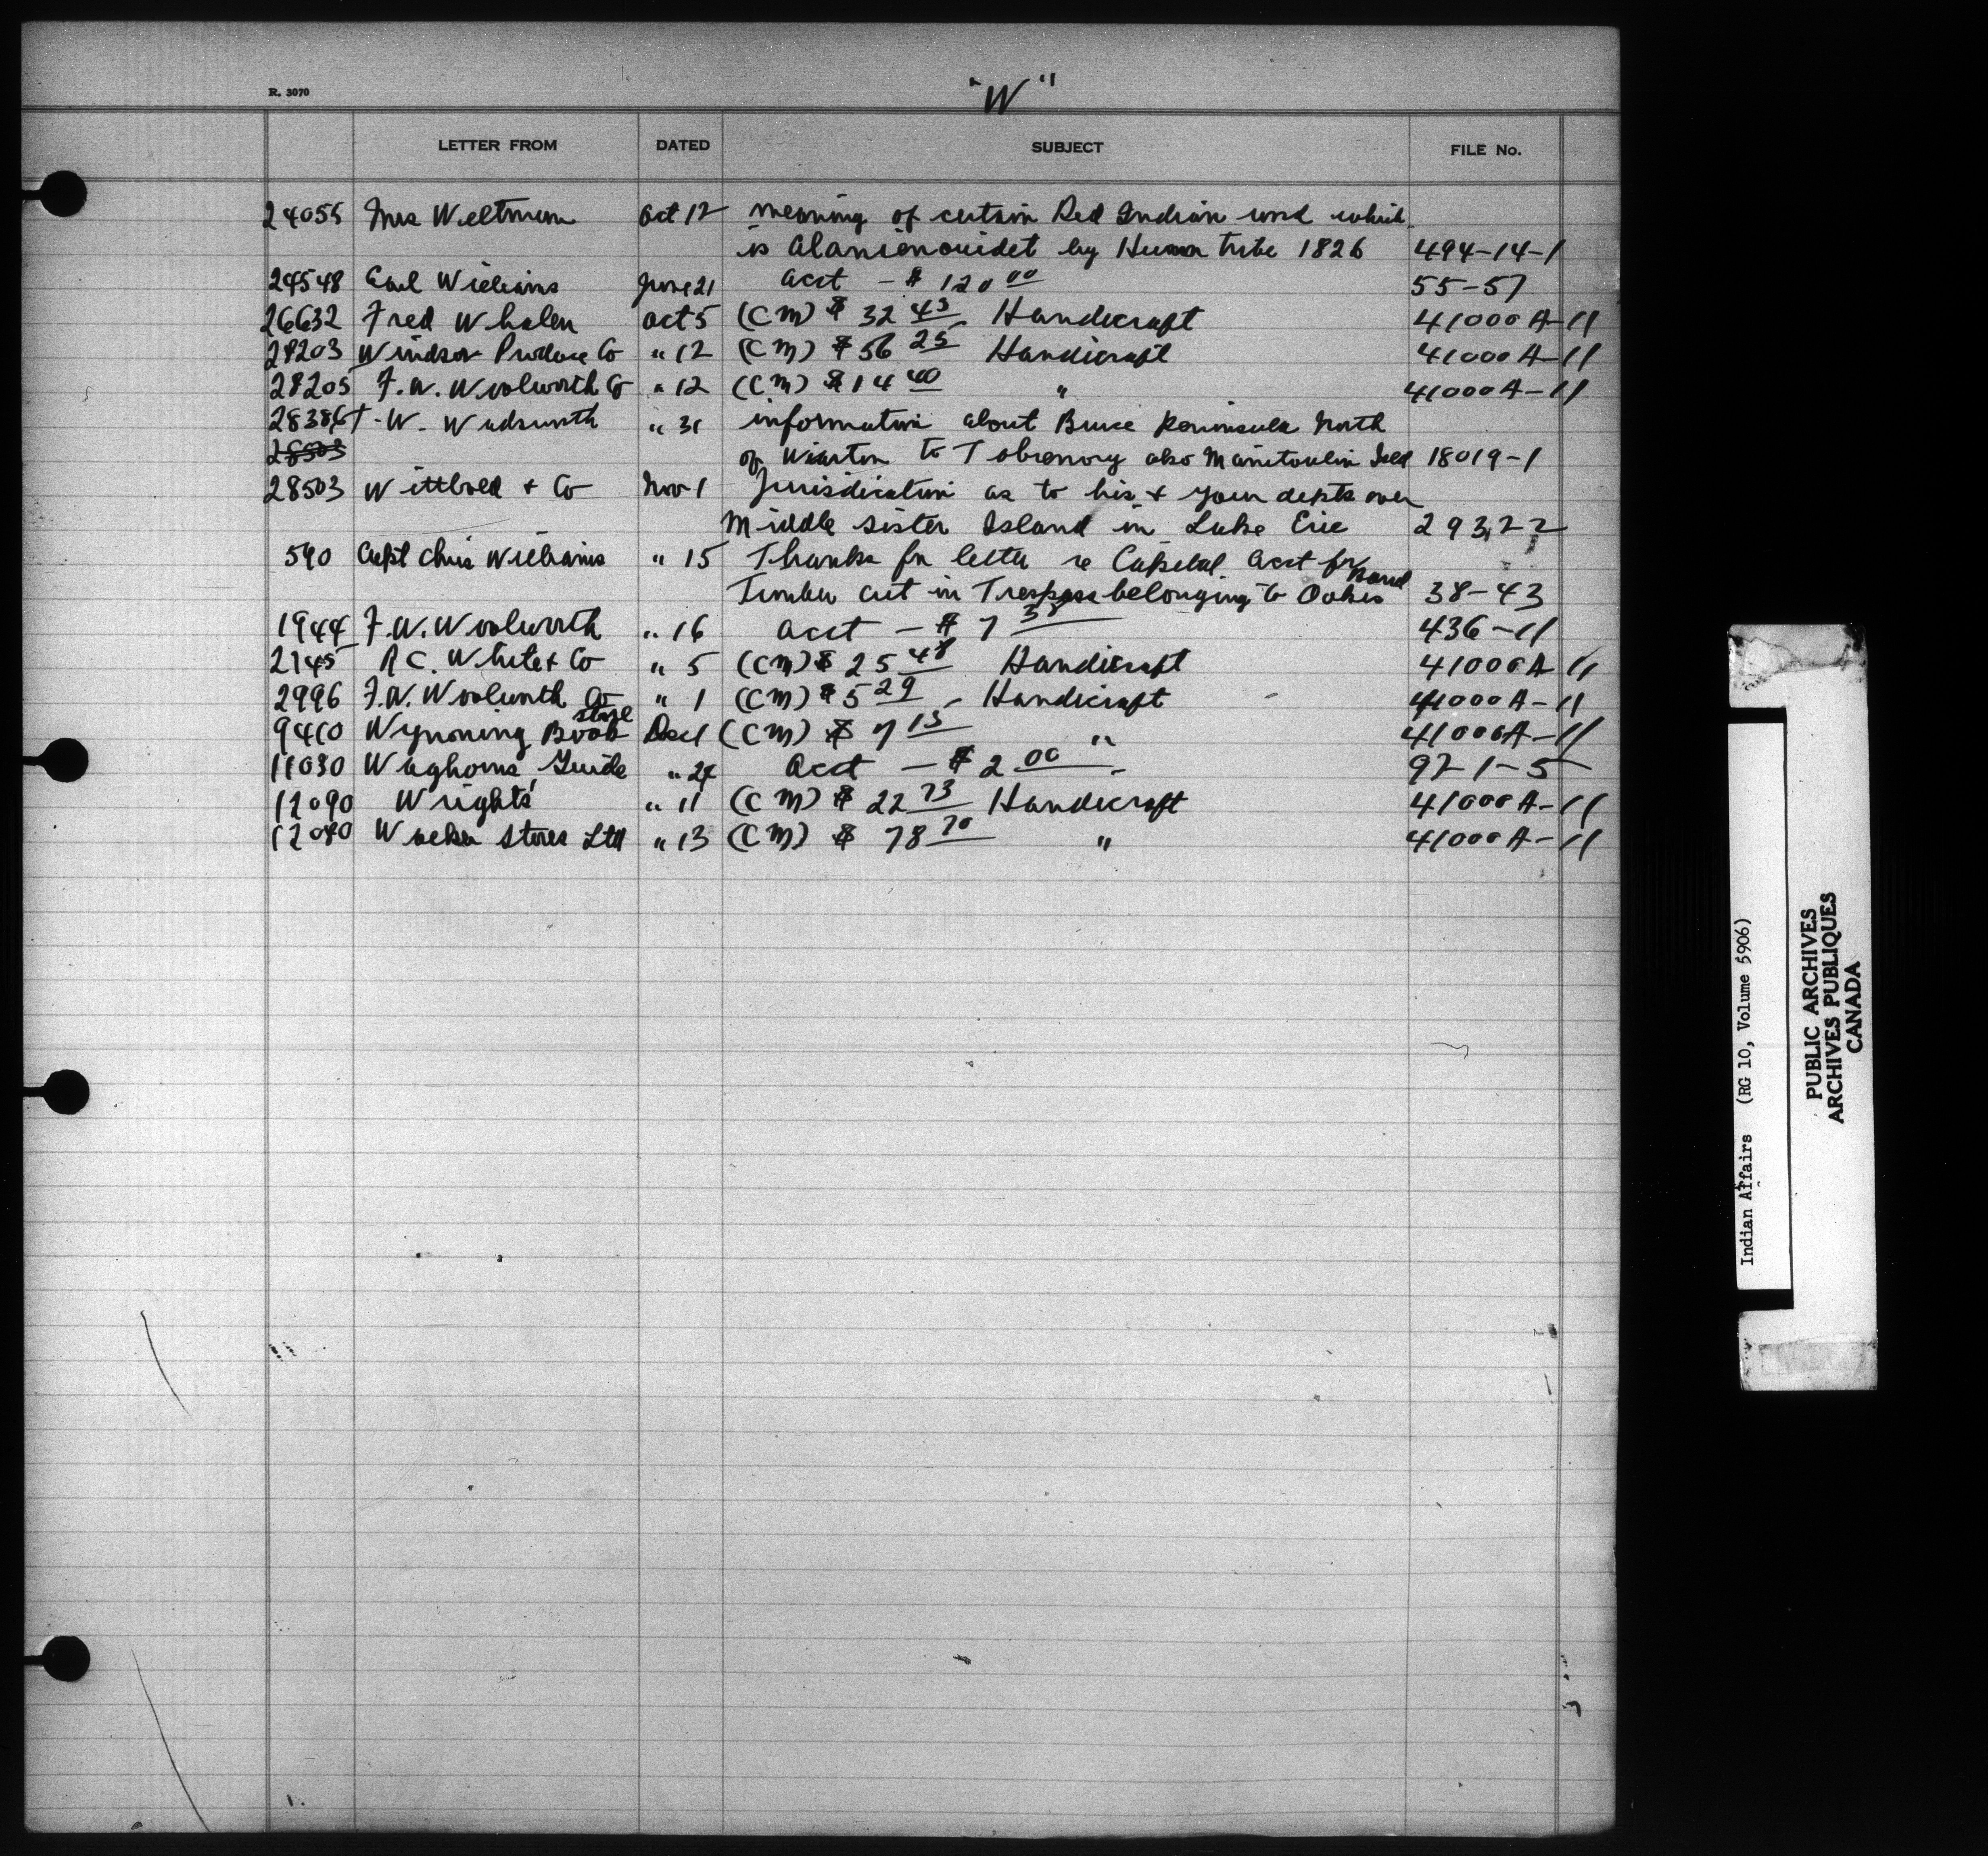 R. 3070
"W"
LETTER FROM DATED SUBJECT FILE No.
24055 Mrs Weltman Oct 12 meaning of certain Red Indian word which
is by Huron tribe 1826 494-14-1
24548 Earl Williams June 21 acct - $ 120 00 55-57
26632 Fred Whalen Oct 5 (CM) $ 32 43 Handicraft 41000 A-11
28203 Windsor Produce Co " 12 (CM) $ 56 25 Handicraft 41000 A-11
28205 F.W. Woolworth Co " 12 (CM) $ 14 40 " 41000 A-11
28386 W. Wadsworth " 31 information about Bruce Peninsula North
28503 of Wiarton to Tobremory also Manitoulin Isld 18019-1
28503 & Co Nov 1 Jurisdication as to his & your depts over
Middle Sister Island in Lake Erie 29322
590 Capt Chris Williams " 15 Thanks for letter re Capital acct for
Timber cut in Trespass belonging to Oohes Band 38-43
1944 F.W. Woolworth " 16 acct - $ 7 38 436-11
2145 R C. White & Co " 5 (CM) $ 25 48 Handicraft 41000 A 11
2996 F.W. Woolworth Co " 1 (CM) $ 5 29 Handicraft 41000 A-11
9410 Wyoming Book store Dec 1 (CM) $ 7 15 " 41000 A-11
11030 Waghorns Guide " 24 Acct - $ 2 00 92-1-5
12090 Wrights' " 11 (CM) $ 22 73 Handicraft 41000 A-11
12080 Stores Ltd " 13 (CM) $ 78 70 " 41000 A-11
Indian Affairs (RG 10, Volume 5906)
PUBLIC ARCHIVES
ARCHIVES PUBLIQUES
CANADA